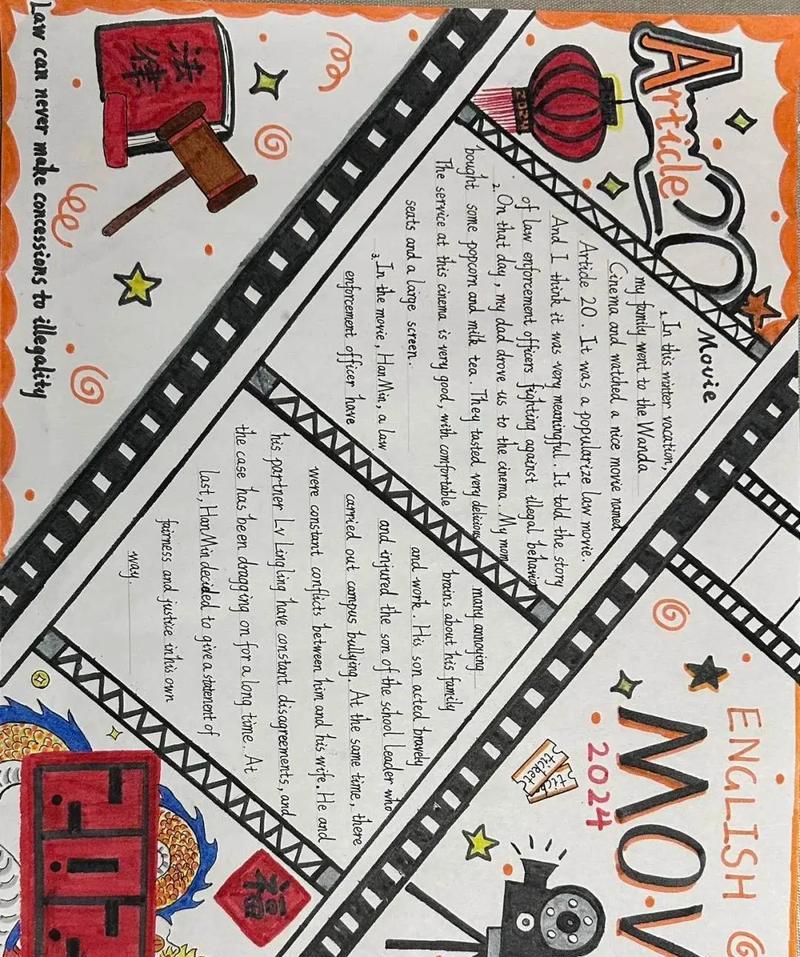 Article 20
2024
法律
Law can never make concessions to illegality
Movie
1. In this winter vacation,
my family went to the Wanda
Cinema and watched a nice movie named
Article 20. It was a popularize law movie.
And I think it was very meaningful. It told the story
of law enforcement officers fighting against illegal behavior
2. On that day, my dad drove us to the cinema. My mom
bought some popcorn and milk tea. They tasted very delicious
The service at this cinema is very good, with comfortable
seats and a large screen.
3. In the movie, Han Min, a law
enforcement officer have
many annoying
brains about his family
and work. His son acted bravely
and injured the son of the school leader who
carried out campus bullying. At the same time, there
were constant conflicts between him and his wife. He and
his partner Lv Lingling have constant disagreements, and
the case has been dragging on for a long time. At
last, Han Min decided to give a statement of
fairness and justice in his own
way.
ENGLISH
MOV
2024
Ticket
福